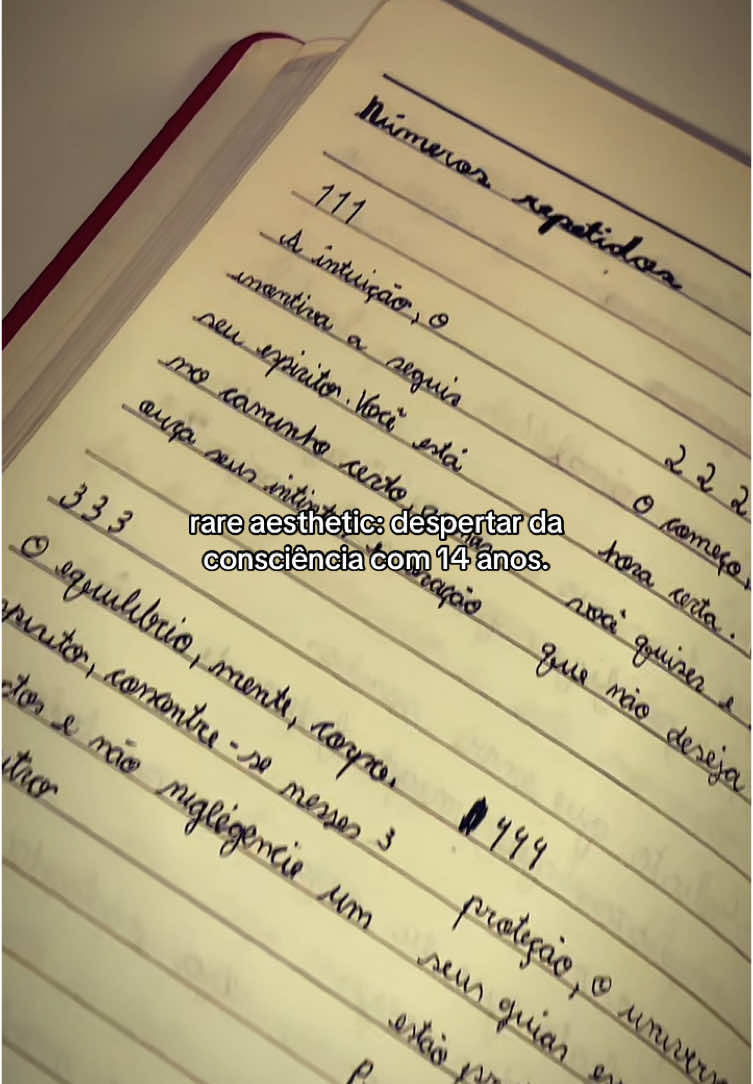 Números repetidos
111
A intuição, o
incentiva a seguir
seu espirito. Você está
no caminho certo,
ouça seus coração
222
O começo,
hora certa.
você quiser e
que não deseja
rare aesthetic: despertar da
consciência com 14 anos.
333
O equilibrio, mente, corpo,
consentre-se nesses 3
e não niglêgencie um
444
proteção, o
seus guias
estão